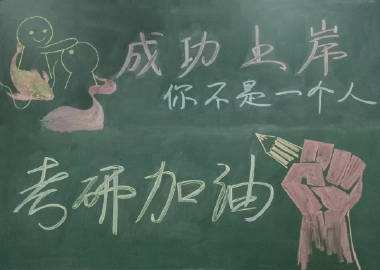 成功上岸
你不是一个人
考研加油